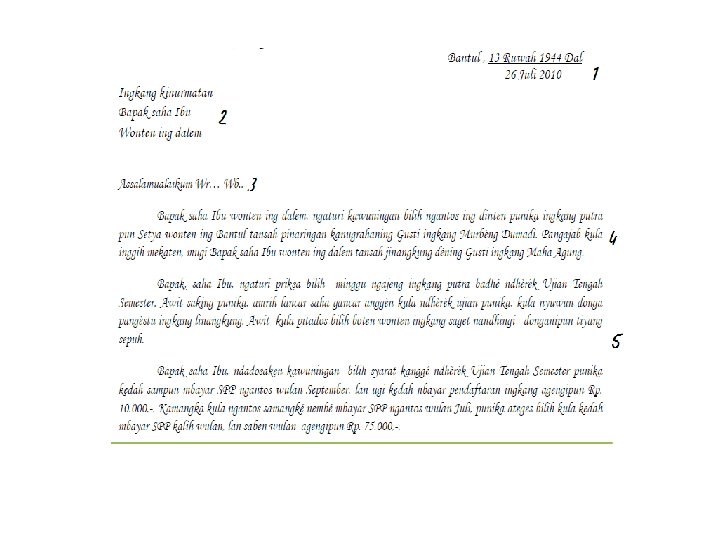 Bantul , 13 Ruwah 1944 Dal
26 Juli 2010 1
Ingkang kinurmatan
Bapak saha Ibu 2
Wonten ing dalem
Assalamualaikum Wr… Wb.. 3
Bapak saha Ibu wonten ing dalem, ngaturi kawuningan bilih ngantos ing dinten punika ingkang putra
pun Setya wonten ing Bantul tansah pinaringan kanugrahaning Gusti ingkang Murbèng Dumadi. Pangajab kula 4
inggih mekaten, mugi Bapak saha Ibu wonten ing dalem tansah jinangkung dèning Gusti ingkang Maha Agung.
Bapak, saha Ibu, ngaturi priksa bilih minggu ngajeng ingkang putra badhé ndhèrèk Ujian Tengah
Semester. Awit saking punika, amrih lancar saha gancar anggèn kula ndhèrèk ujian punika, kula nyuwun donga
pangèstu ingkang linangkung. Awit kula pitados bilih boten wonten ingkang saget nandhingi donganipun tiyang
sepuh. 5
Bapak saha Ibu, ndadosaken kawuningan bilih syarat kanggé ndhèrèk Ujian Tengah Semester punika
kedah sampun mbayar SPP ngantos wulan September, lan ugi kedah nbayar pendaftaran ingkang agengipun Rp.
10.000,-. Kamangka kula ngantos samangké nembé mbayar SPP ngantos wulan Juli, punika ateges bilih kula kedah
mbayar SPP kalih wulan, lan saben wulan agengipun Rp. 75.000,-.